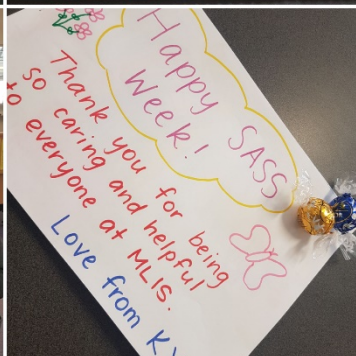 Happy SASS
Week!
Thank you for being
so caring and helpful
to everyone at MLIS.
Love from